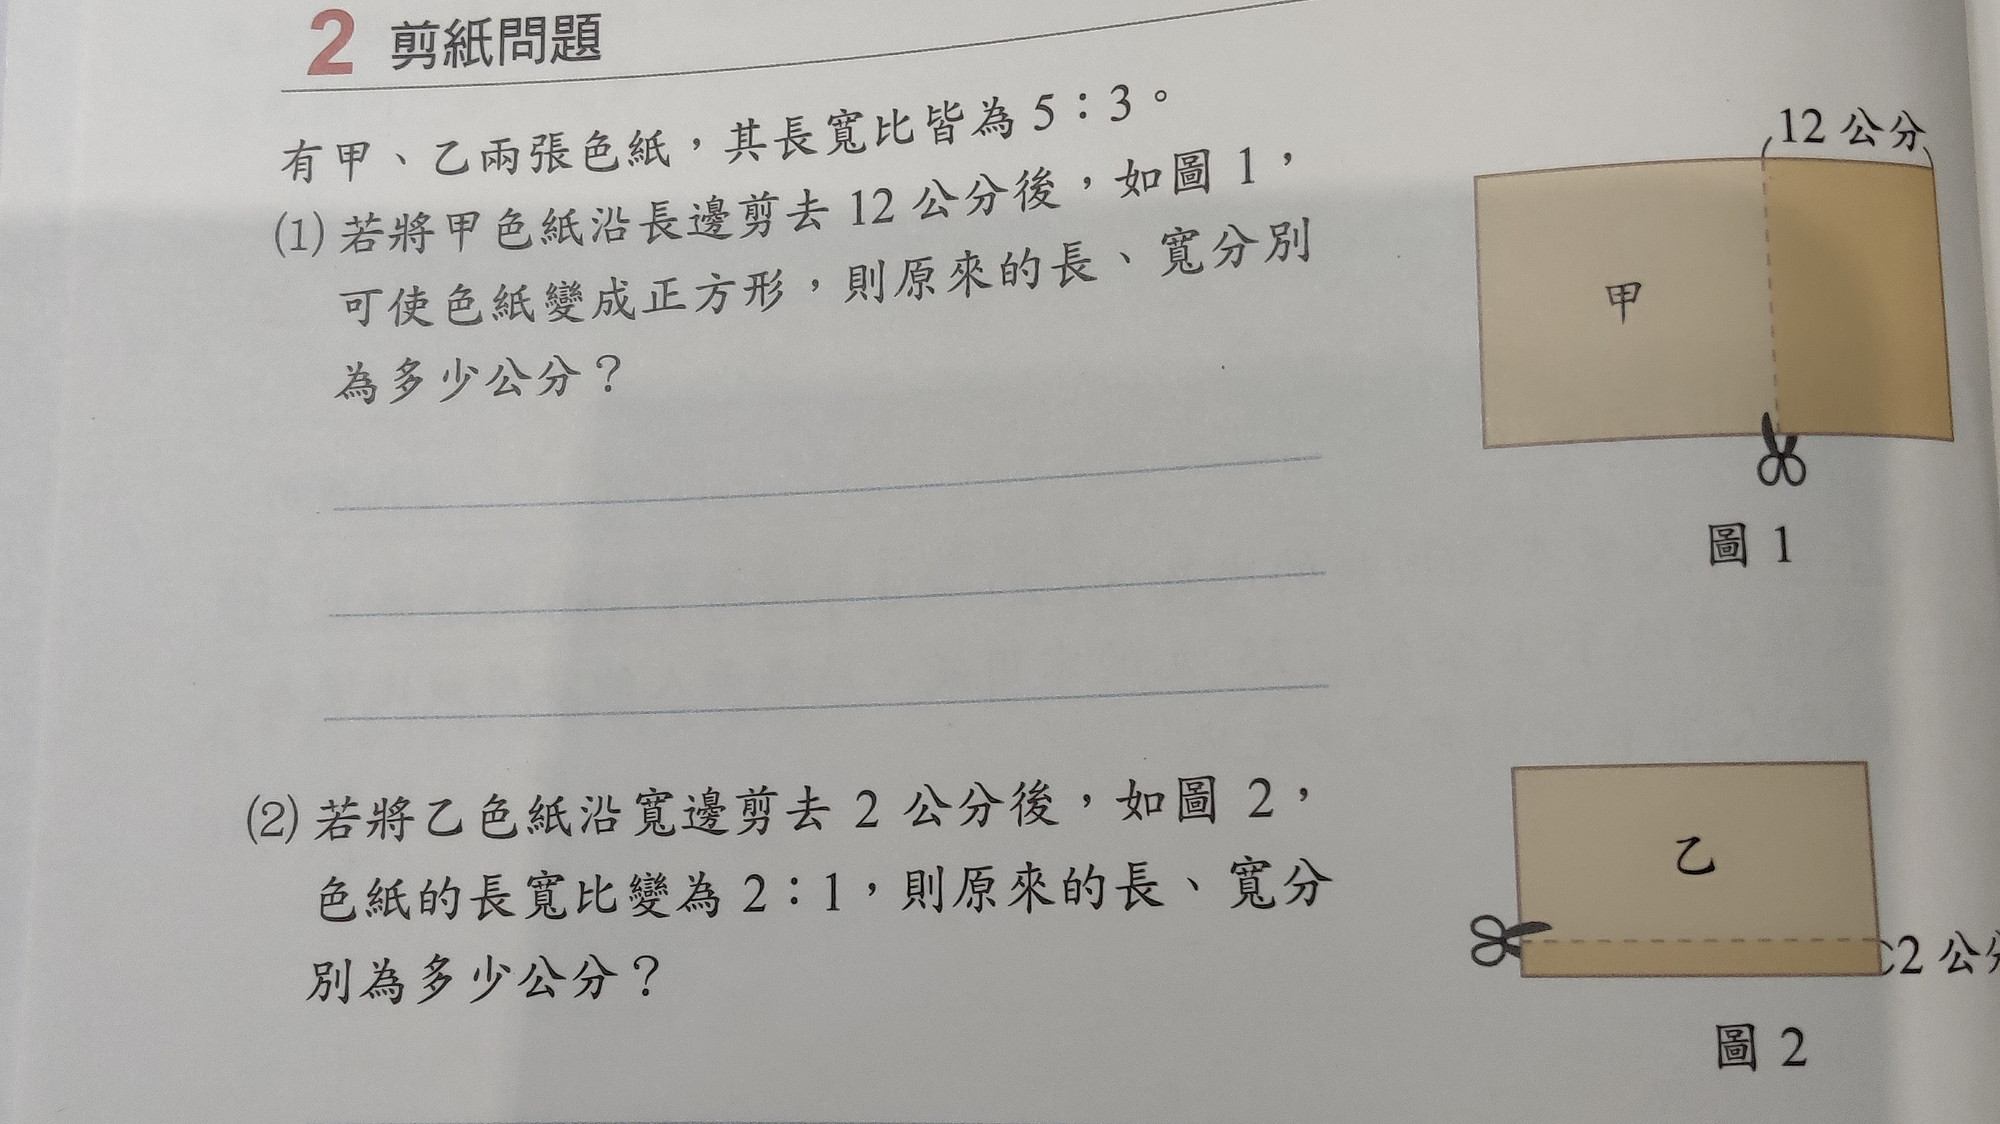 2 剪紙問題
有甲、乙兩張色紙，其長寬比皆為 5：3。
(1) 若將甲色紙沿長邊剪去 12 公分後，如圖 1，
可使色紙變成正方形，則原來的長、寬分別
為多少公分？
12 公分
甲
圖 1
(2) 若將乙色紙沿寬邊剪去 2 公分後，如圖 2，
色紙的長寬比變為 2：1，則原來的長、寬分
別為多少公分？
乙
2 公分
圖 2